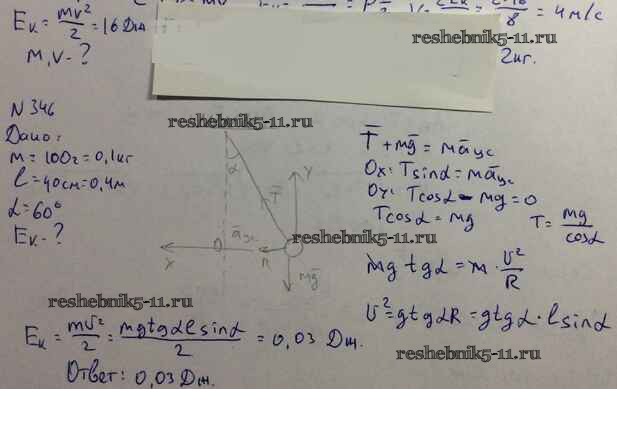 Eк = mv²/2 = 16 Дж
= 4 м/с
m, v - ?
2кг.
reshebnik5-11.ru
N 346
Дано:
m = 100г = 0,1кг
l = 40см = 0,4м
α = 60°
Eк - ?
reshebnik5-11.ru
α
T̄
Y
āцс
O
X
R
mḡ
reshebnik5-11.ru
T̄ + mḡ = māцс
Ox: Tsinα = māцс
Oy: Tcosα - mg = 0
Tcosα = mg
T = mg/cosα
mg tgα = m · v²/R
v² = gtgαR = gtgα · l sinα
reshebnik5-11.ru
Eк = mv²/2 = mgtgαlsinα/2 = 0,03 Дж.
Ответ: 0,03 Дж.
reshebnik5-11.ru